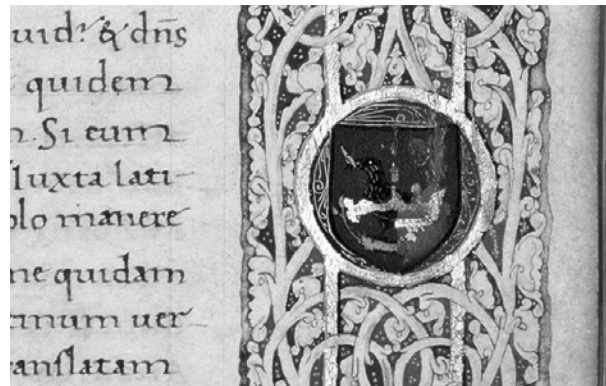 uid? & dn̄s
quidem
n. Si eum
iuxta lati-
olo manere
ne quidam
tinum uer
ranslatam